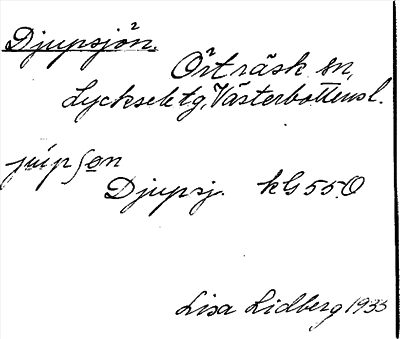 Djupsjön.
Örträsk sn,
Lycksele tg, Västerbottensl.
jupʃøn
Djupsj. kG 55 O
Lisa Lidberg 1933